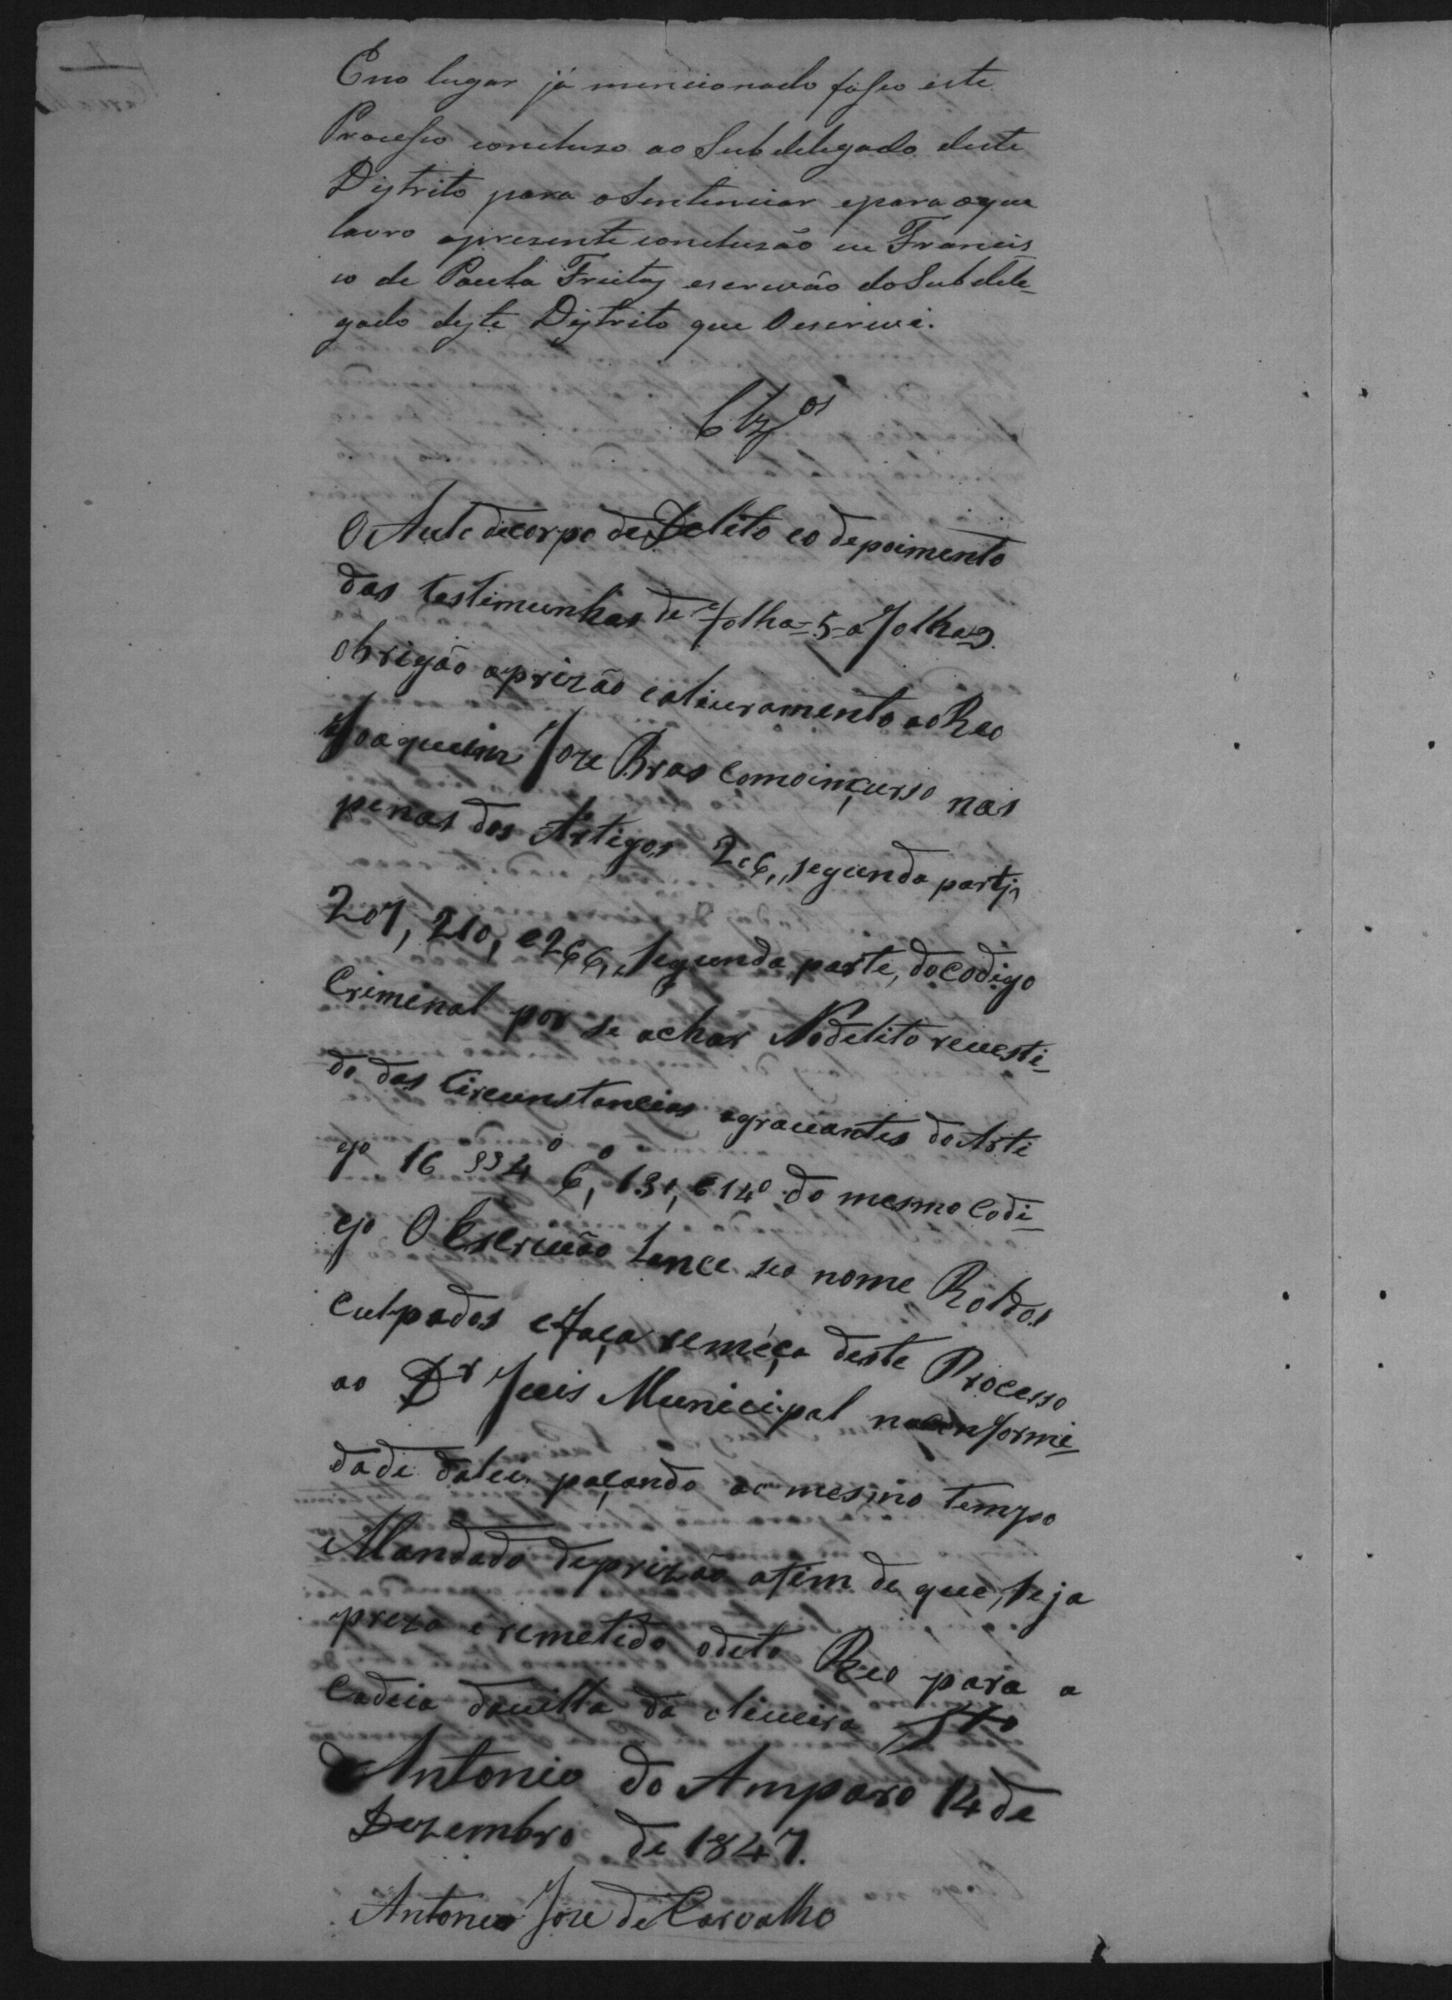 Eno lugar já mencionado fasso este
Processo concluzo ao Subdelegado deste
Distrito para oSentenciar epara oque
lavro apresente concluzão eu Francis
co de Paula Freitas escrivão do Subdele-
gado deste Distrito que Oescrivi.
Clzos
O Auto decorpo de Delito eo depoimento
das testimunhas de folha=5=a folha 9
obrigão aprizão ealivramento ao Reo
Joaquim Joze Bras comoinçurso nas
penas dos Artigos 206,, segunda parte,
207, 210, e266,, Segunda parte, docodigo
Criminal por se achar Nodelito revesti-
do das Circunstancias agravantes doArti
go 16 §§ 4º 6º, 13º, e 14º do mesmo Codi-
go O Escrivão Lance seo nome Roldos
culpados efaça remeça deste Processo
ao Dr Juis Municipal naconformi-
dade dalei paçando ao mesmo tempo
Mandado deprizão afim de que, seja
prezo e remetido odito Reo para a
Cadeia davilla da oliveira Sto
Antonio do Amparo 14 de
Dezembro de 1847.
Antonio Joze de Carvalho